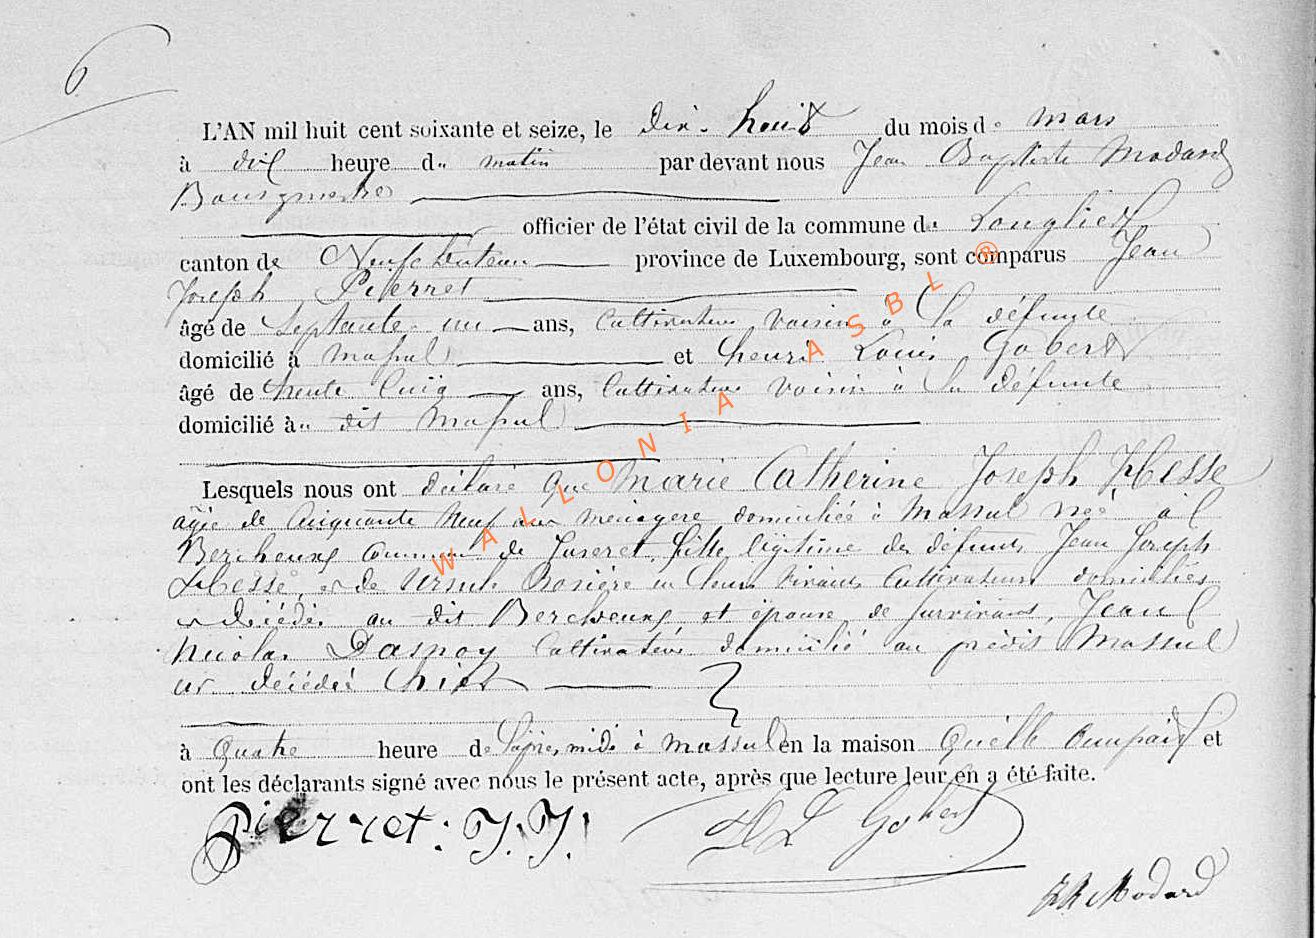 6
L'AN mil huit cent soixante et seize, le dix-huit du mois de mars
à dix heure du matin par devant nous Jean Baptiste Modard
Bourgmestre
officier de l'état civil de la commune de Longlier
canton de Neufchâteau province de Luxembourg, sont comparus Jean
Joseph Pierret
âgé de septante un ans, Cultivateur voisin à la défunte
domicilié à massul et henri Louis Gobert
âgé de trente cinq ans, Cultivateur voisin à la défunte
domicilié au dit massul
Lesquels nous ont déclaré que Marie Catherine Joseph Hesse
agée de Cinquante neuf ans menagere domiciliée à Massul née à
Bercheux commune de Juseret fille légitime des défunts Jean Joseph
Hesse, et de Ursule Rosière en leurs vivants Cultivateurs domiciliés
et décédés au dit Bercheux et épouse de survivant, Jean
Nicolas Dasnoy Cultivateur domicilié au prédit Massul
est décédée hier
à quatre heure de l'après midi à massul en la maison qu'elle occupait et
ont les déclarants signé avec nous le présent acte, après que lecture leur en a été faite.
Pierret: J. J. H L Gobert
JB Modard
WALLONIA ASBL ®